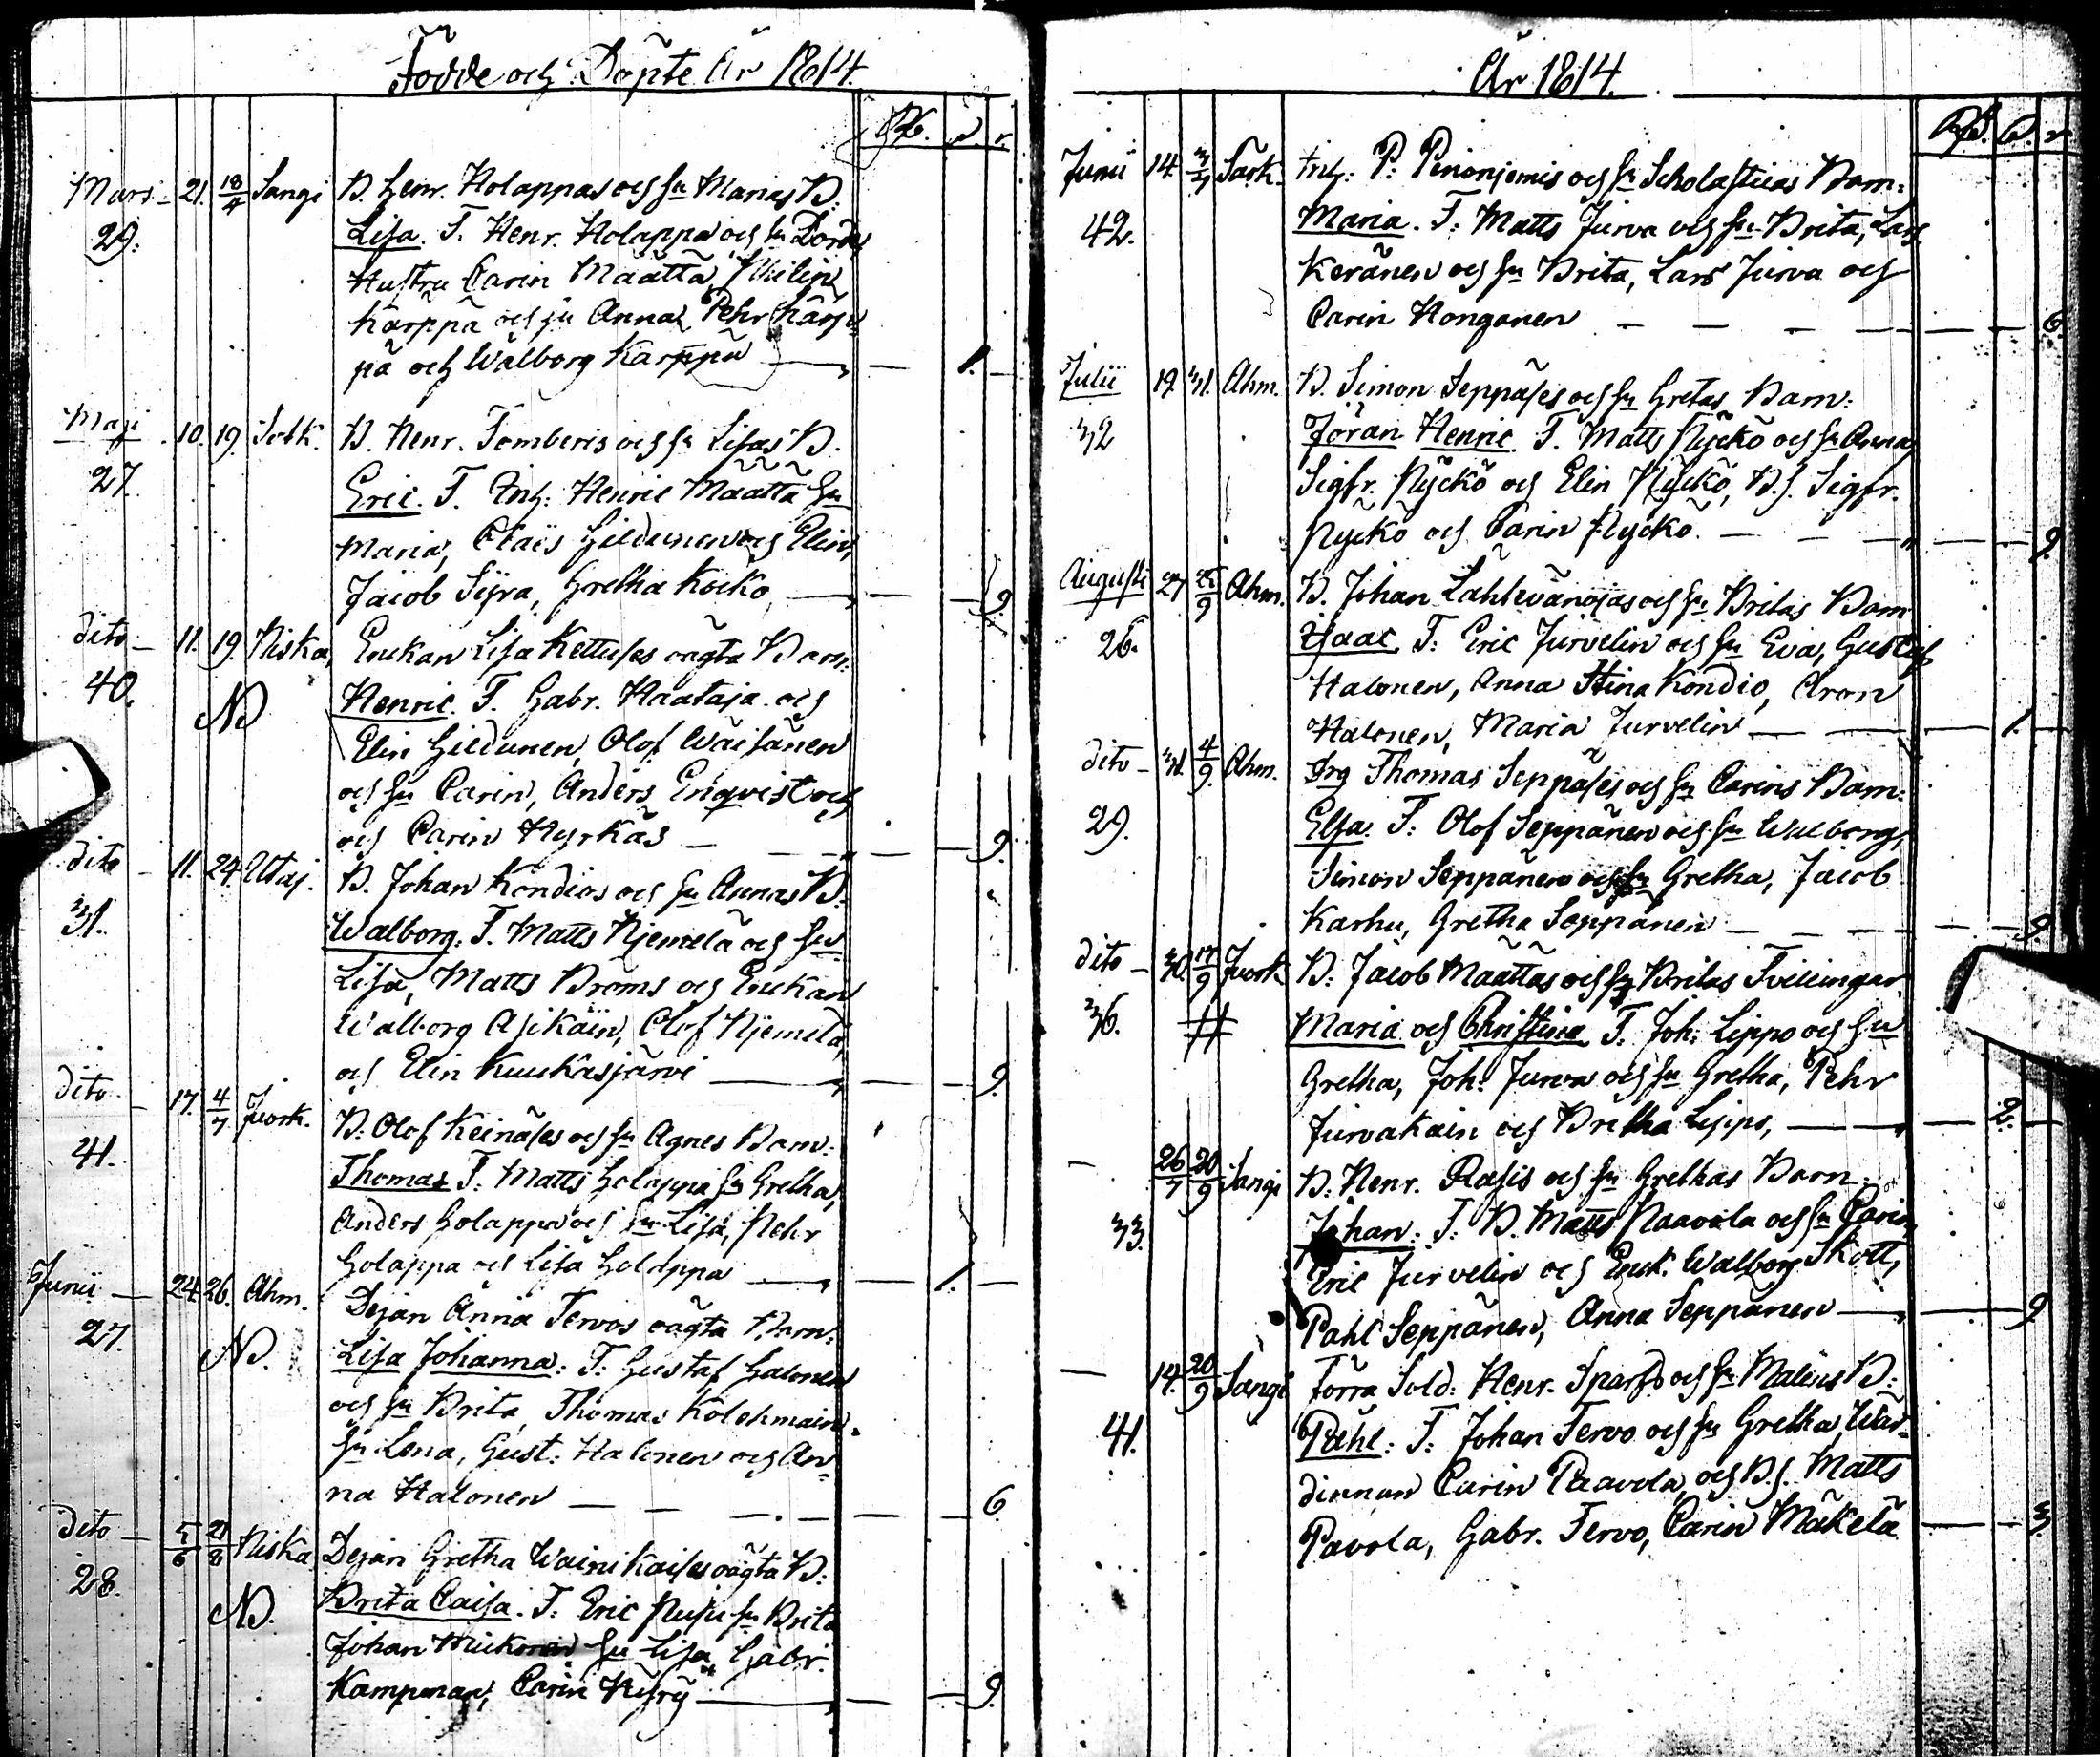 Födde och Döpte År 1814.
Mars - 21. 18/4 Sangi B. Henr. Holappas och hu Marias B.
29. Lisa. F. Henr. Holappa och hu
Hustru Carin Määttä, Philip
Kärppä och hu Anna, Pehr Kärp-
pä och Walborg Kärppä — 1.
Maji 10. 19. Sotk. B. Henr. Tomberis och hu Lisas B.
27. Eric. F. Inh: Henric Määttä hu
Maria, Claes Hildunen och Elin,
Jacob Sijra, Gretha Kocko — 9.
dito - 11. 19. Niska, Enckan Lisa Kettuses oägta Barn:
40. NB Henric. F. Gabr. Haataja och
Elin Hildunen, Olof Wäisänen
och hu Carin, Anders Enqvist och
och Carin Hyrkäs — 9.
dito - 11. 24. Utaj. B. Johan Kondios och hu Annas B.
31. Walborg. F. Matts Njemelä och hu
Lisa, Matts Broms och Enckan
Walborg Asikain, Olof Njemelä,
och Elin Kuukasjärvi — 9.
dito - 17. 4/7 Juork. B. Olof Keinäses och hu Agnes Barn:
41. Thomas F. Matts Holappa hu Gretha,
Anders Holappa och hu Lisa, Pehr
Holappa och Lisa Holappa — 1.
Junii - 24. 26. Ahm. Dejan Anna Tervos oägta Barn:
27. NB. Lisa Johanna: F. Gustaf Halonen
och hu Brita, Thomas Kolehmain.
hu Lena, Gust: Halonen och An-
na Halonen — 6
dito - 5/6 21/8 Niska Dejan Gretha Wainikaises oägta B:
28. NB. Brita Caisa. F: Eric hu Brita
Johan hu Lisa, Gabr.
Kampman, Carin — 9.
År 1814.
Junii 14. 3/7 Särk. Inh: P: Pinonjemis och hu Scholasticas Barn:
42. Maria. F: Matts Jurva och hu Brita, Lars
Keränen och hu Brita, Lars Jurva och
Carin Honganen — 6.
Julii 19. 31. Ahm. B. Simon Seppäses och hu Gretas Barn:
32 Jöran Henric. F. Matts Nyckö och hu Anna,
Sigfr. Nyckö och Elin Nyckö, B.s. Sigfr.
Nyckö och Carin Nyckö. — 9.
Augusti 27 Ahm. B. Johan Lahtevänojas och hu Britas Barn
26. Isaac. F: Eric Jurvelin och hu Eva, Gustaf
Halonen, Anna Stina Kondio, Aron
Halonen, Maria Jurvelin — 1.
dito - 31. 4/9. Ahm. Thomas Seppäses och hu Carins Barn:
29. Elsa. F: Olof Seppänen och hu Walborg,
Simon Seppänen och hu Gretha, Jacob
Karhu, Gretha Seppänen — 9.
dito - 30. 17/9 Juork B: Jacob Määttäs och hu Britas Tvillingar
36. # Maria och Christina F. Joh: Lippo och hu
Gretha, Joh: Jurva och hu Gretha, Pehr
Jurvakain och Britha Lippo, — 2.
- 26/7 20/9 Sangi B: Henr. Rasis och hu Grethas Barn.
33. Johan: F. B. Matts Paavola och hu Carin,
Eric Jurvelin och Enck. Walborg Skott,
Pahl Seppänen, Anna Seppänen — 9
- 14. 20/9 Sangi Förra Sold: Henr. Sparfs och hu Malins B:
41. Påhl: F: Johan Tervo och hu Gretha, Wär-
dinnan Carin Paavola, och B.s. Matts
Pavola, Gabr. Tervo, Carin Mäkelä — 3